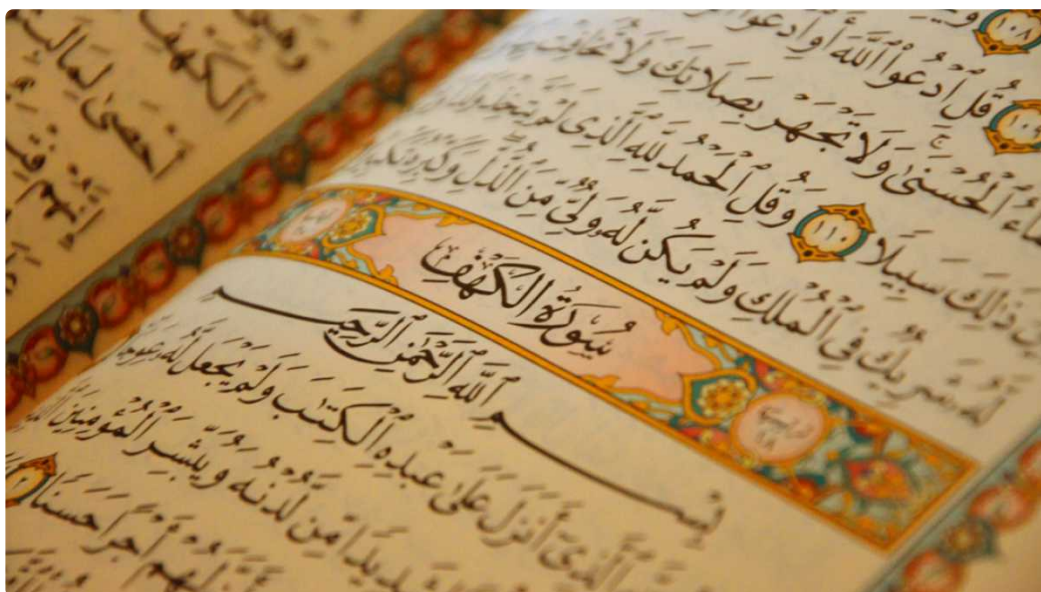 ١٠٨
١٠٩ قُلِ ٱدْعُوا۟ ٱللَّهَ أَوِ ٱدْعُوا۟
ٱلْحُسْنَىٰ وَلَا تَجْهَرْ بِصَلَاتِكَ وَلَا تُخَافِتْ
ذَٰلِكَ سَبِيلًا ١١٠ وَقُلِ ٱلْحَمْدُ لِلَّهِ ٱلَّذِى لَمْ يَتَّخِذْ وَلَدًا
لَّهُۥ شَرِيكٌ فِى ٱلْمُلْكِ وَلَمْ يَكُن لَّهُۥ وَلِىٌّ مِّنَ ٱلذُّلِّ وَكَبِّرْهُ تَكْبِيرًا
سُورَةُ الكَهْفِ
ترتيبها ١٨
بِسْمِ ٱللَّهِ ٱلرَّحْمَٰنِ ٱلرَّحِيمِ
ٱلَّذِىٓ أَنزَلَ عَلَىٰ عَبْدِهِ ٱلْكِتَٰبَ وَلَمْ يَجْعَل لَّهُۥ عِوَجَا
مِّن لَّدُنْهُ وَيُبَشِّرَ ٱلْمُؤْمِنِينَ
لَهُمْ أَجْرًا حَسَنًا
ٱلْكَهْفِ
أَحْصَىٰ لِمَا